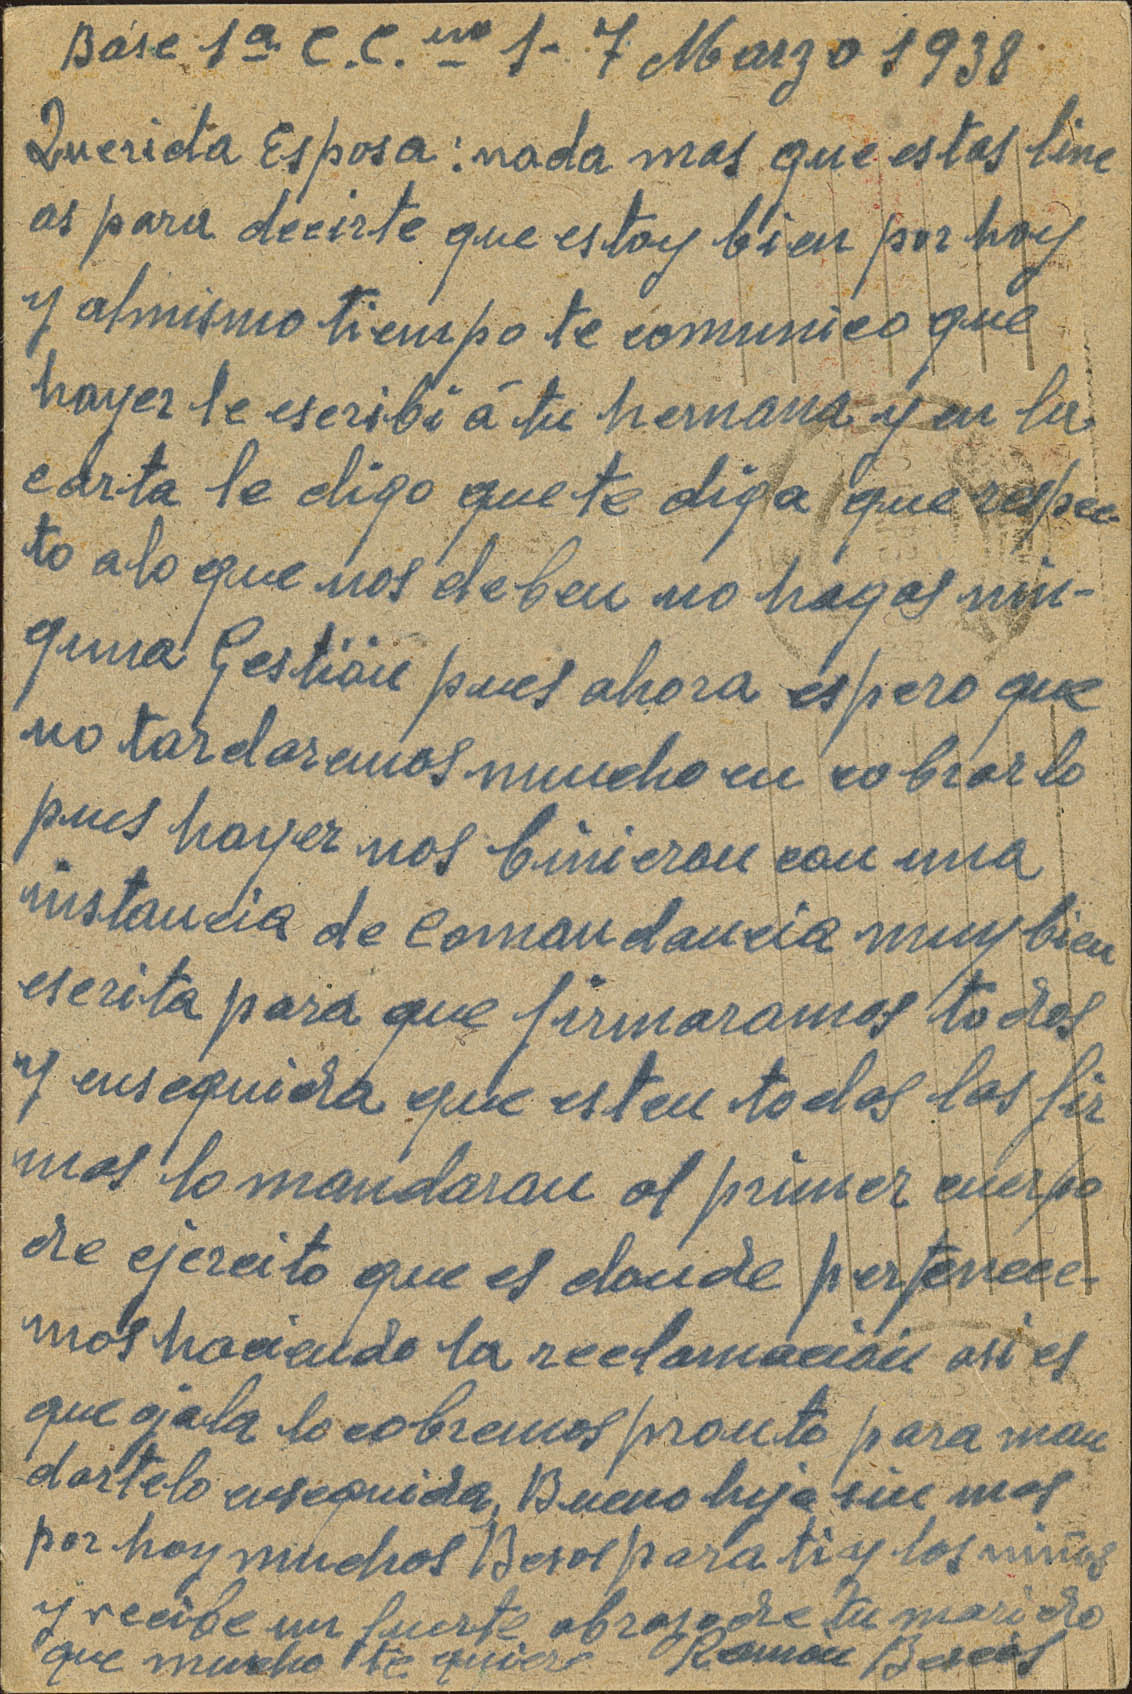 Base 1ª C.C. nº 1- 7 Marzo 1938
Querida Esposa: nada mas que estas line
as para decirte que estoy bien por hoy
y almismo tiempo te comunico que
hayer le escribi á tu hermana y en la
carta le digo que te diga que respec-
to alo que nos deben no hagas nin-
guna Gestión pues ahora espero que
no tardaremos mucho en cobrarlo
pues hayer nos binieron con una
instancia de Comandancia muy bien
escrita para que firmaramos todos
y enseguida que esten todas las fir
mas lo mandaran al primer cuerpo
de ejercito que es donde pertenece-
mos haciendo la reclamación asi es
que ojala lo cobremos pronto para man
dartelo enseguida, Bueno hija sin mas
por hoy muchos Besos para ti y los niños
y recibe un fuerte abraso de tu marido
que mucho te quiere Ramon